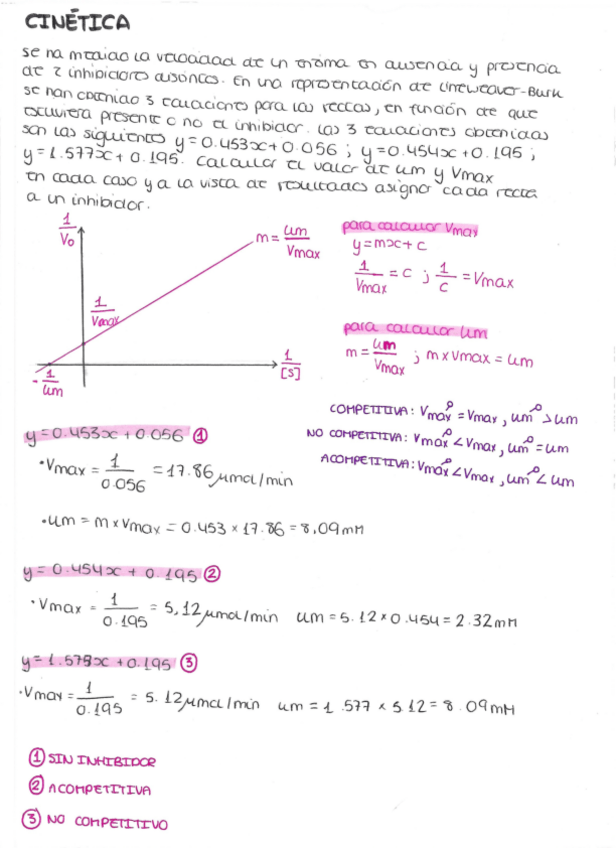 CINÉTICA
se ha medido la velocidad de un enzima en ausencia y presencia
de 2 inhibidores distintos. En una representación de Lineweaver-Burk
se han obtenido 3 ecuaciones para las rectas, en función de que
estuviera presente o no el inhibidor. Las 3 ecuaciones obtenidas
son las siguientes y=0.453x+0.056 ; y=0.454x+0.195 ;
y=1.577x+0.195. Calcular el valor de km y Vmax
en cada caso y a la vista de resultados asignar cada recta
a un inhibidor.
1/V₀
m = km/Vmax
1/Vmax
1/[S]
-1/km
para calcular Vmax
y=mx+c
1/Vmax = c ; 1/c = Vmax
para calcular km
m = km/Vmax ; m x Vmax = km
COMPETITIVA: Vmax^ap = Vmax, km^ap > km
NO COMPETITIVA: Vmax^ap < Vmax, km^ap = km
ACOMPETITIVA: Vmax^ap < Vmax, km^ap < km
y=0.453x+0.056 ①
·Vmax = 1/0.056 = 17.86 μmol/min
·km = m x Vmax = 0.453 x 17.86 = 8.09 mM
y=0.454x + 0.195 ②
·Vmax = 1/0.195 = 5,12 μmol/min km = 5.12 x 0.454 = 2.32 mM
y=1.577x+0.195 ③
·Vmax = 1/0.195 = 5.12 μmol/min km = 1.577 x 5.12 = 8.09 mM
① SIN INHIBIDOR
② ACOMPETITIVA
③ NO COMPETITIVO